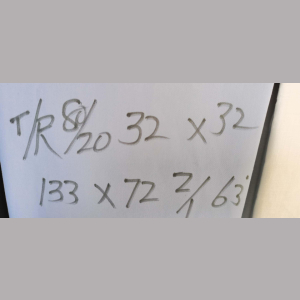 T/R 80/20 32 x 32
133 x 72 2/1 63"